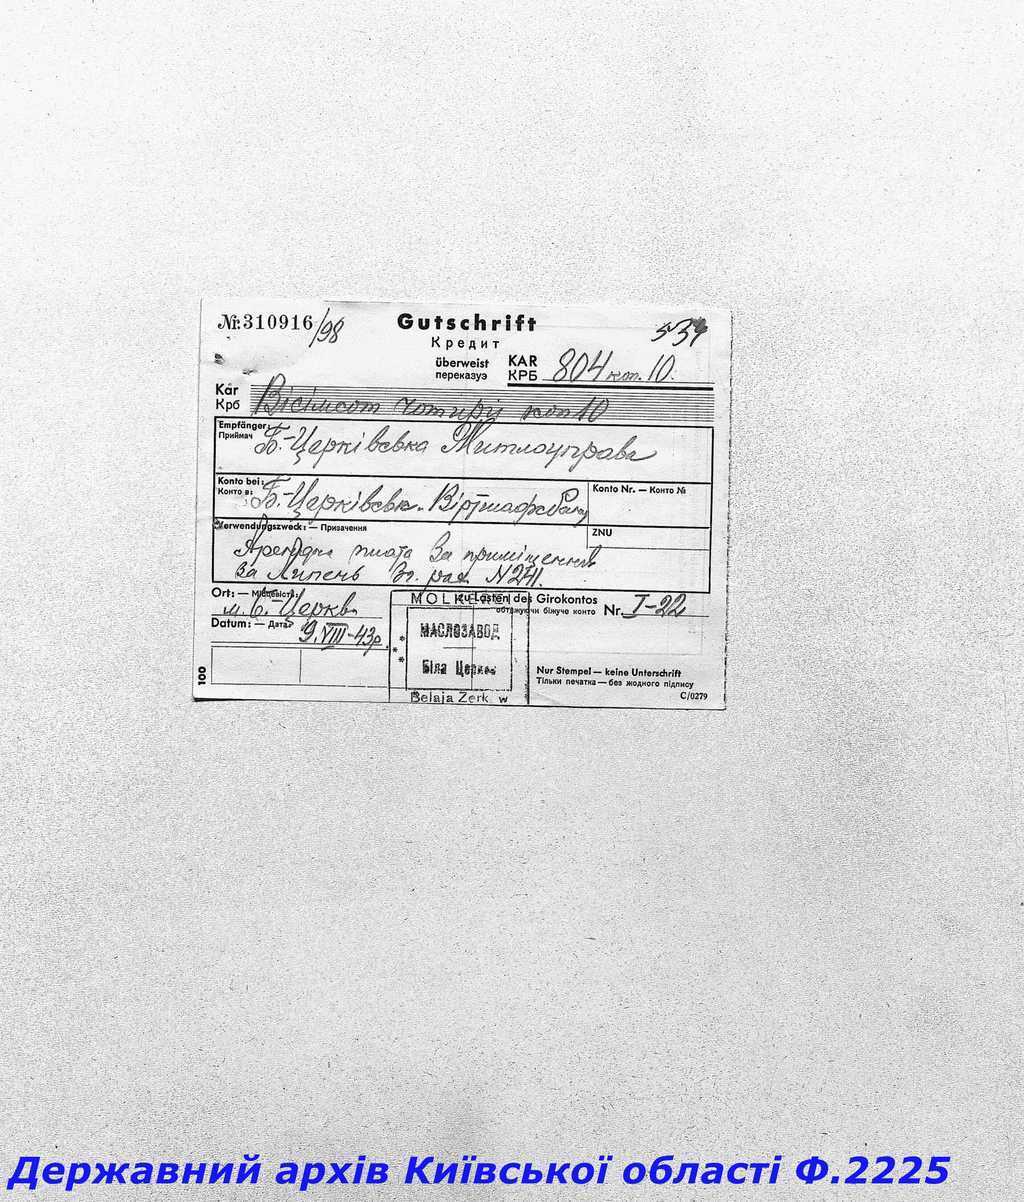 № 310916/98 Gutschrift 534
Кредит
überweist KAR 804 коп. 10.
переказуэ КРБ
Kar Вісімсот чотири коп 10
Крб
Empfänger: Б.-Церківська Житлоуправа
Приймач
Konto bei: Б-Церківськ. Віртшафтбанк Konto Nr. — Конто №
Конто в:
Verwendungszweck: — Призачення ZNU
Арендна плата за приміщення
за Липень рах. N 241.
Ort: — Місцевість: м. Б. Церква
zu Lasten des Girokontos Nr. I-22
обтяжуючи біжуче конто
Datum: — Дата: 9.VIII-43р.
MOLKEREI
МАСЛОЗАВОД
Біла Церква
Belaja Zerk w
Nur Stempel — keine Unterschrift
Тільки печатка — без жодного підпису
C/0279
100
Державний архів Київської області Ф.2225